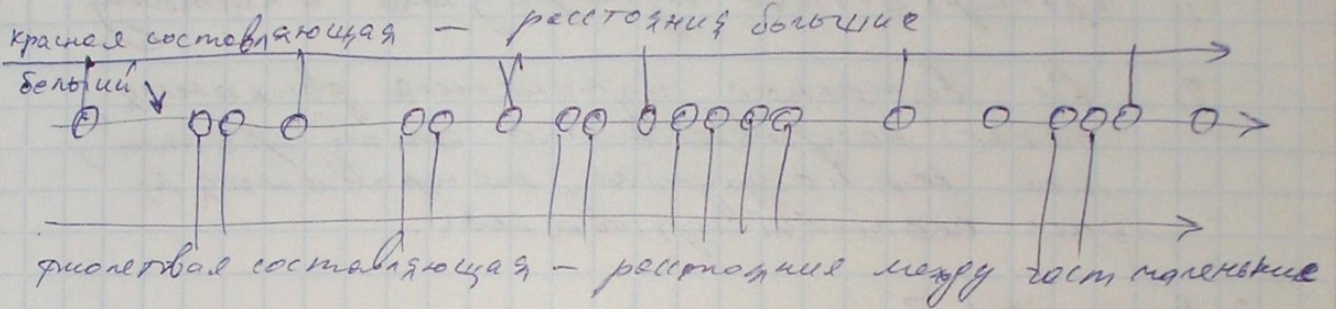 красная составляющая — расстояния большие
белый
фиолетовая составляющая — расстояние между част маленькие